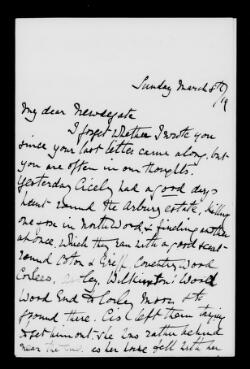 Sunday March 8th
/19
My dear Newdegate
I forget whether I wrote you
since your last letter came along. but
you are often in our thoughts.
Yesterday Cicely had a good days
hunt round the Arbury estate, killing
one fox in North Wood, & finding another
at once, which they ran with a good scent
round Astley & Griff. Coventry Wood
Corley, Wilkinson's Wood
Wood End & Corley Moor, to
ground there. Cis left them trying
to get him out: she was rather behind
near the end. as her horse fell with her